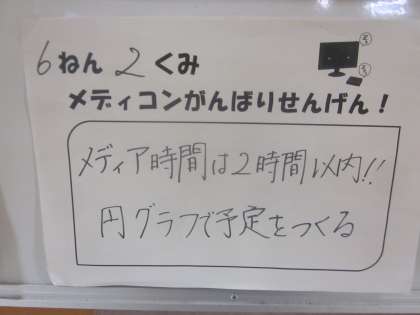 6ねん2くみ
メディコンがんばりせんげん！
メディア時間は2時間以内!!
円グラフで予定をつくる